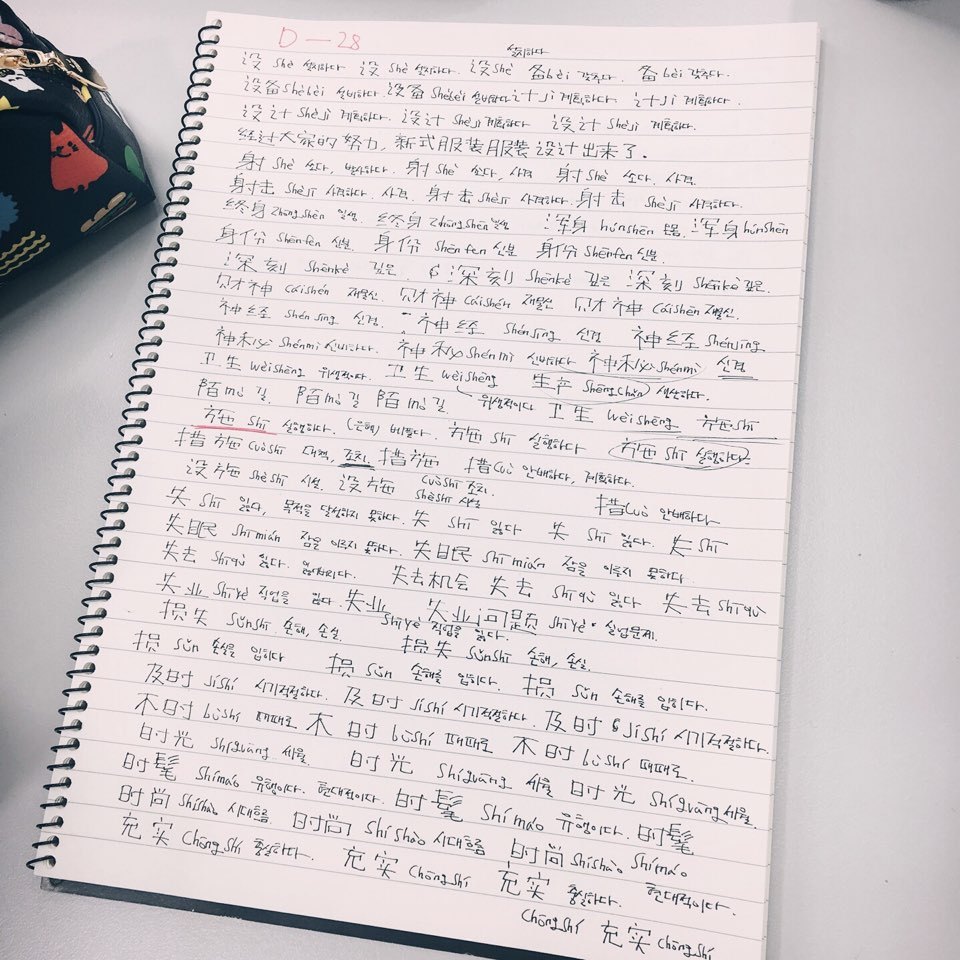 D - 28
설치하다
设 shè 설치하다 设 shè 설치하다. 设 shè 备 bèi 갖추다. 备 bèi 갖추다.
设备 shèbèi 설비하다. 设备 shèbèi 설비하다 计 jì 계획하다 计 jì 계획하다.
设计 shèjì 계획하다. 设计 shèjì 계획하다 设计 shèjì 계획하다.
经过大家的努力, 新式服装服装设计出来了.
射 shè 쏘다, 발사하다. 射 shè 쏘다, 사격 射 shè 쏘다. 사격.
射击 shèjī 사격하다. 사격. 射击 shèjī 사격하다. 射击 shèjī 사격하다.
终身 zhōngshēn 일생. 终身 zhōngshēn 일생 浑身 húnshēn 온몸. 浑身 húnshēn
身份 shēnfen 신분. 身份 shēnfen 신분 身份 shēnfen 신분.
深刻 shēnkè 깊은. 深刻 shēnkè 깊은 深刻 shēnkè 깊은.
财神 cáishén 재물신. 财神 cáishén 재물신 财神 cáishén 재물신.
神经 shénjīng 신경. 神经 shénjīng 신경 神经 shénjīng
神秘 shénmì 신비하다. 神秘 shénmì 신비하다 神秘 shénmì 신경
卫生 wèishēng 위생적이다. 卫生 wèishēng 生产 shēngchǎn 생산하다.
陌 mò 길. 陌 mò 길 陌 mò 길. 위생적이다 卫生 wèishēng 施 shī
施 shī 실행하다. (은혜) 베풀다. 施 shī 실행하다 施 shī 실행하다
措施 cuòshī 대책, 조치. 措施 措 cuò 안배하다, 계획하다.
设施 shèshī 시설. 设施 cuòshī 조치. shèshī 시설 措 cuò 안배하다
失 shī 잃다, 목적을 달성하지 못하다. 失 shī 잃다 失 shī 잃다. 失 shī
失眠 shīmián 잠을 이루지 못하다. 失眠 shīmián 잠을 이루지 못하다.
失去 shīqù 잃다. 잃어버리다. 失去机会 失去 shīqù 잃다 失去 shīqù
失业 shīyè 직업을 잃다. 失业 shīyè 직업을 잃다. 失业问题 shīyè 실업문제.
损失 sǔnshī 손해, 손실. 损失 sǔnshī 손해, 손실.
损 sǔn 손실을 입히다 损 sǔn 손해를 입히다. 损 sǔn 손해를 입히다.
及时 jíshí 시기적절하다. 及时 jíshí 시기적절하다. 及时 jíshí 시기적절하다.
不时 bùshí 때때로 不时 bùshí 때때로 不时 bùshí 때때로.
时光 shíguāng 세월. 时光 shíguāng 세월 时光 shíguāng 세월.
时髦 shímáo 유행이다. 현대적이다. 时髦 shímáo 유행이다. 时髦
时尚 shíshào 시대흐름 时尚 shíshào 시대흐름 时尚 shíshào shímáo
充实 chōngshí 충실하다. 充实 chōngshí 充实 충실하다. 현대적이다.
chōngshí 充实 chōngshí